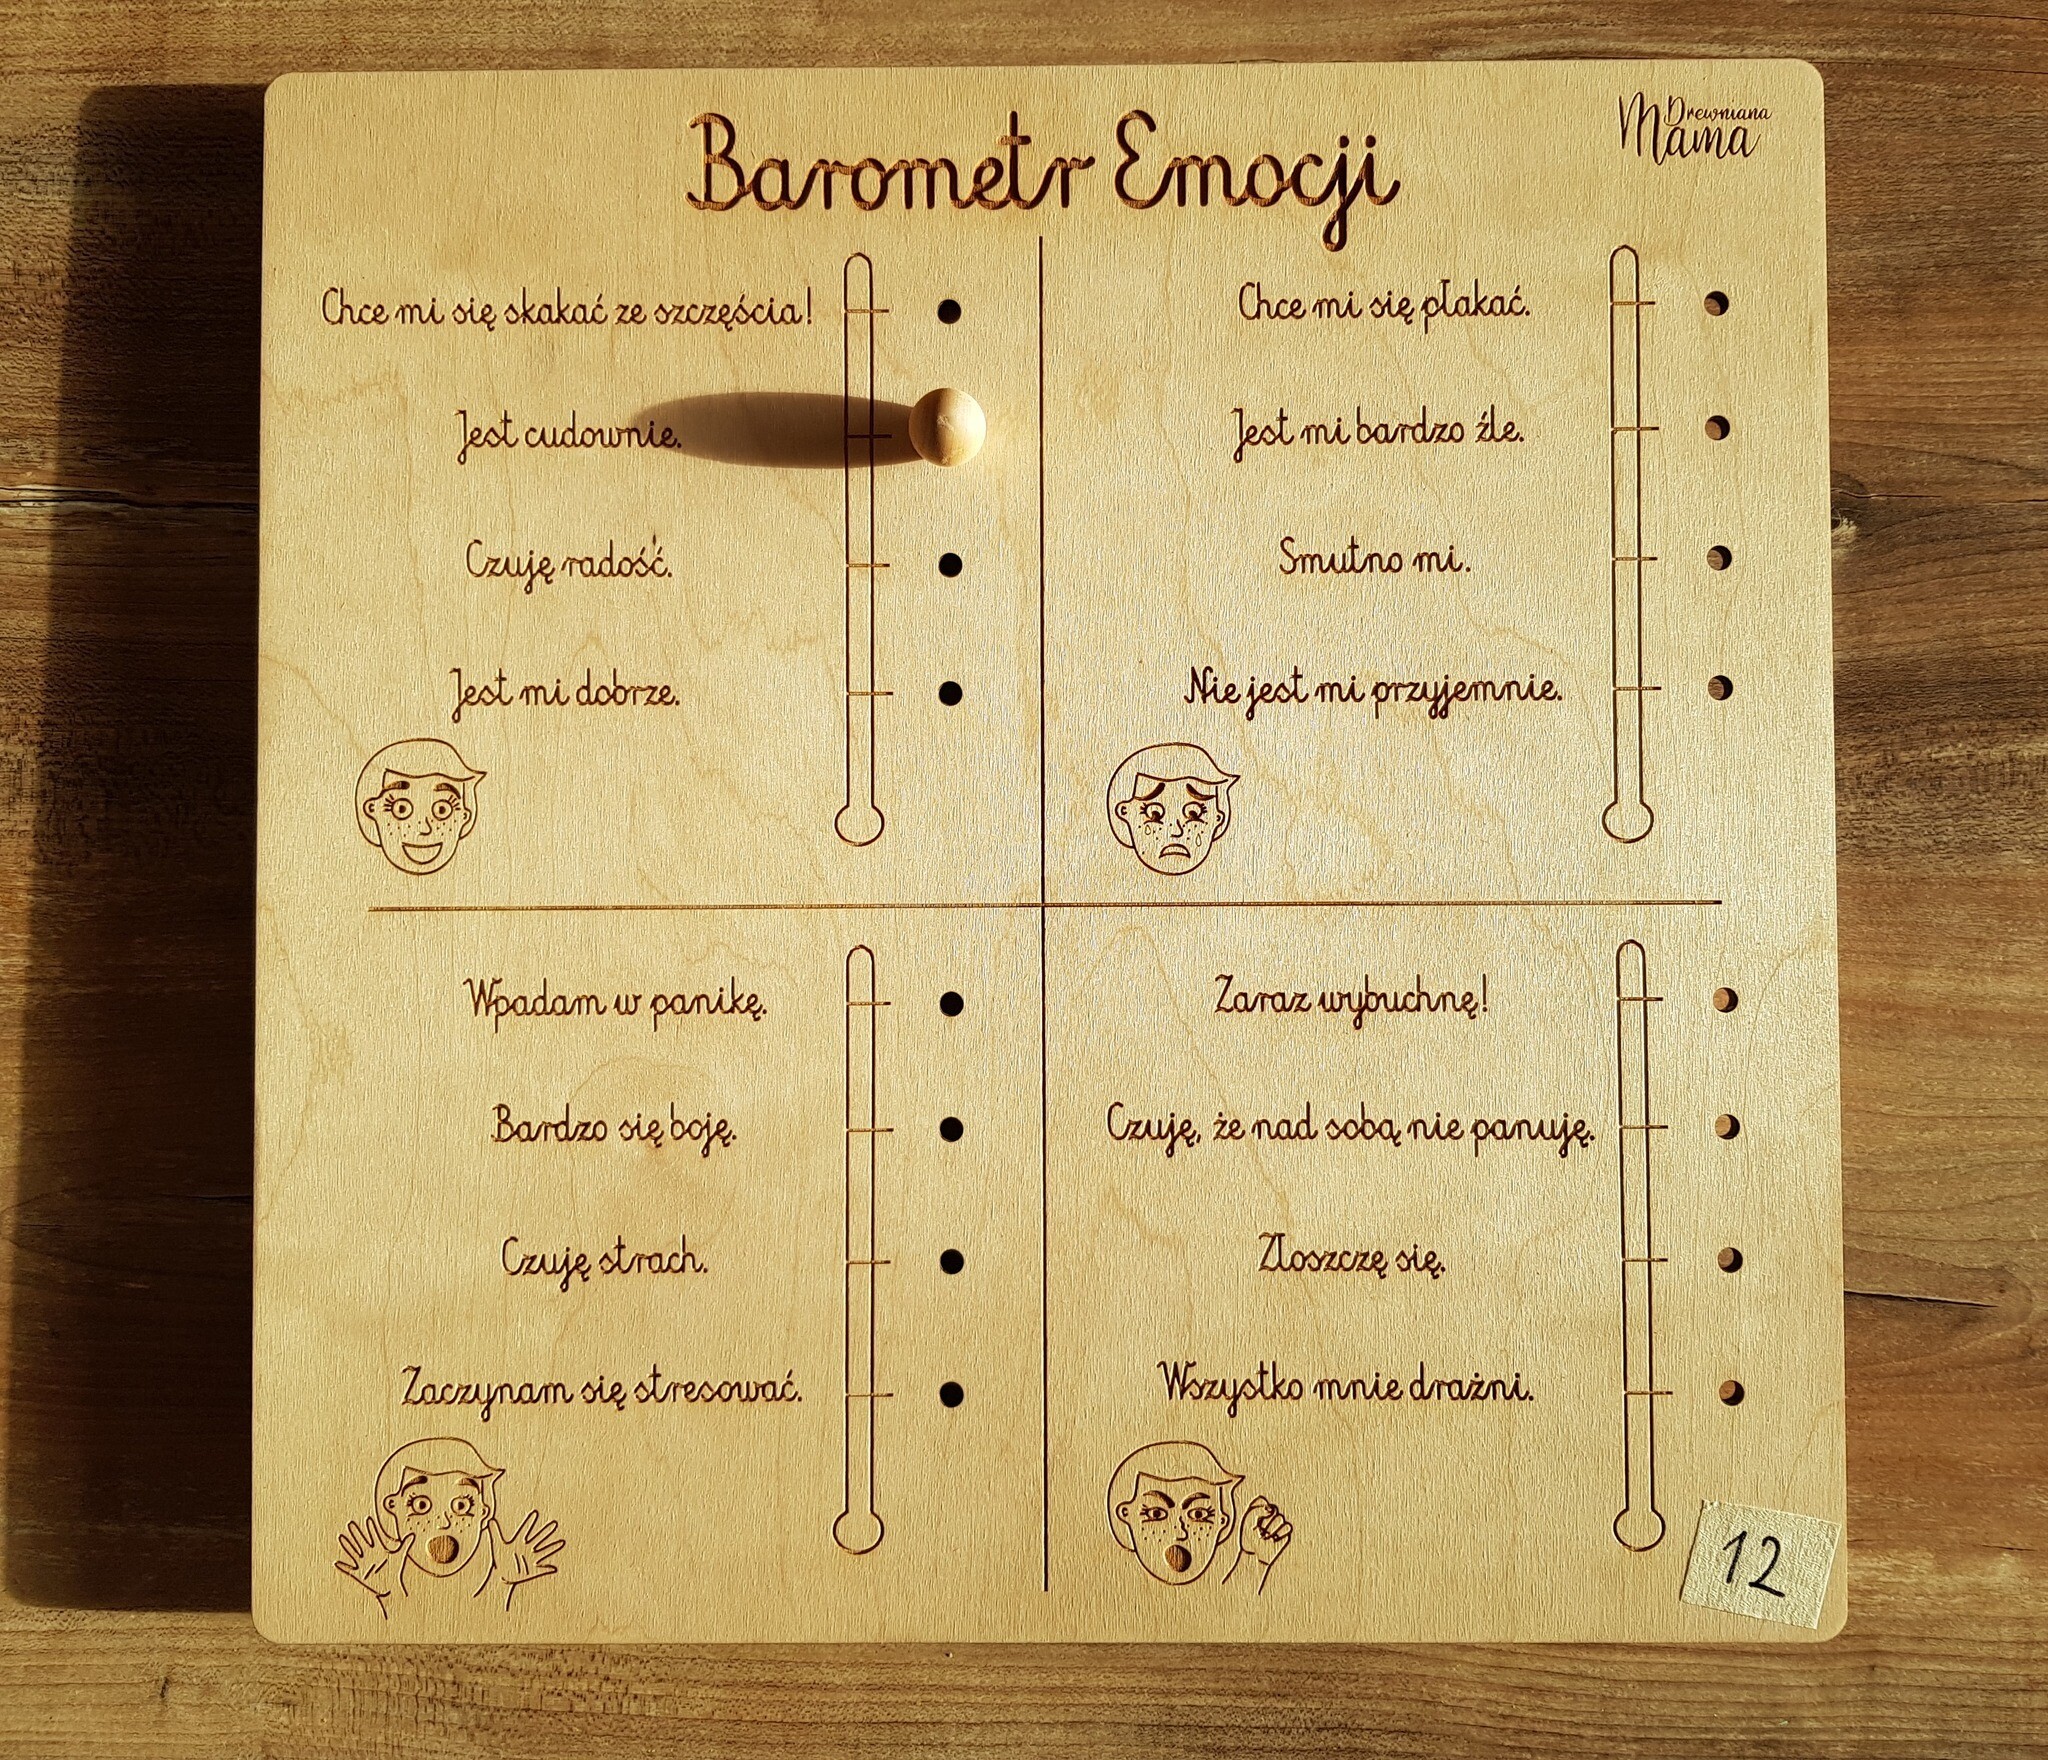 Barometr Emocji
Drewniana
Mama
Chce mi się skakać ze szczęścia!
Jest cudownie.
Czuję radość.
Jest mi dobrze.
Chce mi się płakać.
Jest mi bardzo źle.
Smutno mi.
Nie jest mi przyjemnie.
Wpadam w panikę.
Bardzo się boję.
Czuję strach.
Zaczynam się stresować.
Zaraz wybuchnę!
Czuję, że nad sobą nie panuję.
Złoszczę się.
Wszystko mnie drażni.
12